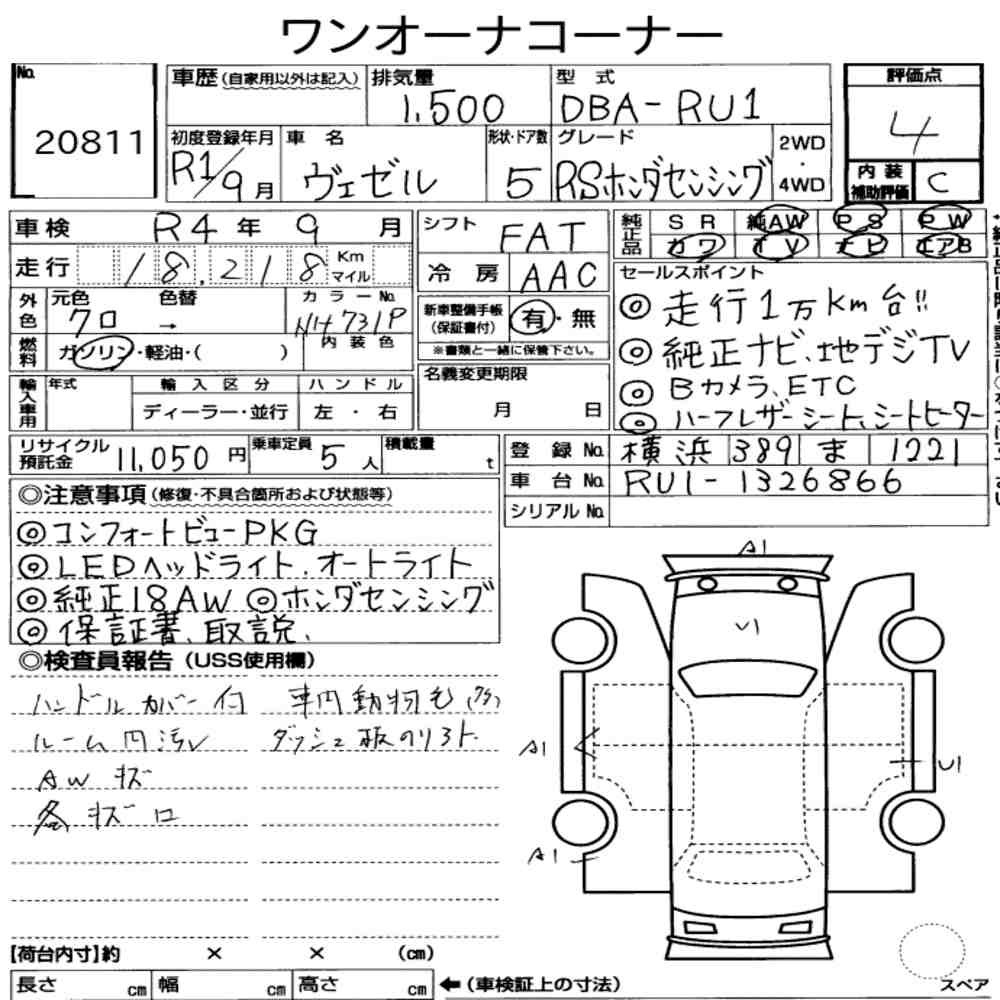 ワンオーナーコーナー
No. 20811
車歴 (自家用以外は記入) 排気量 1,500 型式 DBA-RU1
評価点 4
初度登録年月 R1/9月 車名 ヴェゼル 形状・ドア数 5 グレード RSホンダセンシング 2WD・4WD
内装補助評価 C
車検 R4年9月 シフト FAT 純正品 SR 純AW PS PW
カワ TV ナビ エアB
走行 18,218 Km マイル 冷房 AAC
セールスポイント
◎走行1万km台!!
◎純正ナビ、地デジTV
◎Bカメラ、ETC
◎ハーフレザーシート、シートヒーター
外色 元色 クロ 色替 → カラーNo. NH731P
内装色
燃料 ガソリン・軽油・( )
新車整備手帳(保証書付) 有・無
※書類と一緒に保管下さい。
輸入車用 年式 輸入区分 ハンドル
ディーラー・並行 左・右
名義変更期限 月 日
リサイクル預託金 11,050円 乗車定員 5人 積載量 t
登録No. 横浜 389 ま 1221
車台No. RU1-1326866
シリアルNo.
◎注意事項(修復・不具合箇所および状態等)
◎コンフォートビューPKG
◎LEDヘッドライト、オートライト
◎純正18AW ◎ホンダセンシング
◎保証書、取説、
◎検査員報告(USS使用欄)
ハンドルカバー付 車内動物毛
ルーム内汚レ ダッシュ板のリ3ト
AWキズ
各キズ凹
A1
U1
A1
U1
A1
【荷台内寸】約 × × (cm)
長さ cm 幅 cm 高さ cm ←(車検証上の寸法)
スペア